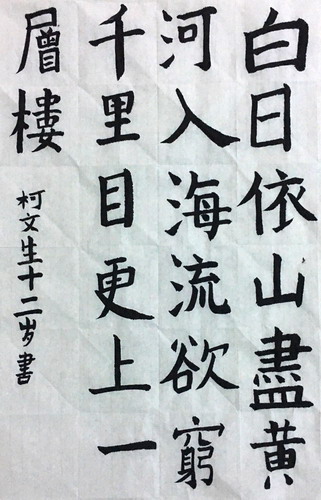 白日依山盡黄
河入海流欲窮
千里目更上一
層樓
柯文生十二岁書